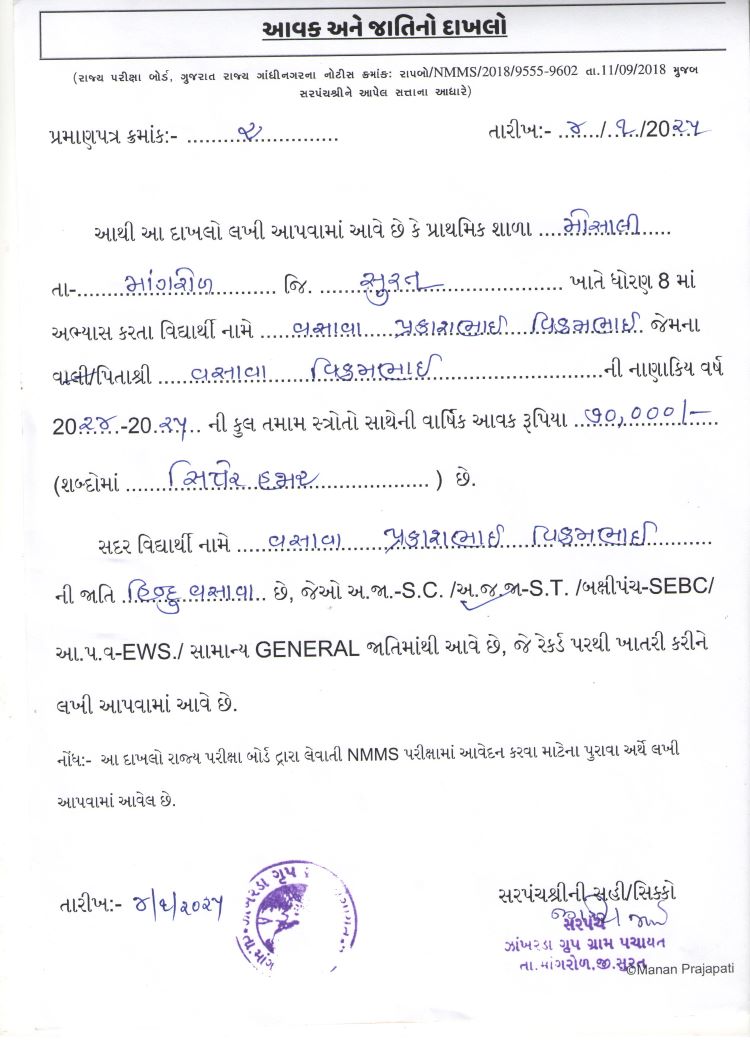 આવક અને જાતિનો દાખલો
(રાજ્ય પરીક્ષા બોર્ડ, ગુજરાત રાજ્ય ગાંધીનગરના નોટીસ ક્રમાંક: રાપબો/NMMS/2018/9555-9602 તા.11/09/2018 મુજબ
સરપંચશ્રીને આપેલ સત્તાના આધારે)
પ્રમાણપત્ર ક્રમાંક:- ...૨... તારીખ:- ..૪../.૧./20૨૫
આથી આ દાખલો લખી આપવામાં આવે છે કે પ્રાથમિક શાળા ....મોસાલી......
તા-.......માંગરોળ......... જિ. ......સુરત............ ખાતે ધોરણ 8 માં
અભ્યાસ કરતા વિદ્યાર્થી નામે ....વસાવા પ્રકાશભાઈ વિક્રમભાઈ. જેમના
વાલી/પિતાશ્રી ....વસાવા વિક્રમભાઈ..................ની નાણાકિય વર્ષ
20૨૪-20૨૫.. ની કુલ તમામ સ્ત્રોતો સાથેની વાર્ષિક આવક રૂપિયા ..૭૦,૦૦૦/-
(શબ્દોમાં ......સિત્તેર હજાર................ ) છે.
સદર વિદ્યાર્થી નામે ....વસાવા પ્રકાશભાઈ વિક્રમભાઈ........
ની જાતિ .હિન્દુ વસાવા.. છે, જેઓ અ.જા.-S.C. /અ.જ.જા-S.T. /બક્ષીપંચ-SEBC/
આ.પ.વ-EWS./ સામાન્ય GENERAL જાતિમાંથી આવે છે, જે રેકર્ડ પરથી ખાતરી કરીને
લખી આપવામાં આવે છે.
નોંધ:- આ દાખલો રાજ્ય પરીક્ષા બોર્ડ દ્વારા લેવાતી NMMS પરીક્ષામાં આવેદન કરવા માટેના પુરાવા અર્થે લખી
આપવામાં આવેલ છે.
તારીખ:- ૪/૧/૨૦૨૫
ઝાંખરડા ગ્રુપ
તા.માંગ
સરપંચશ્રીની સહી/સિક્કો
સરપંચ
ઝાંખરડા ગ્રુપ ગ્રામ પચાયત
તા.માંગરોળ,જી.સુરત
©Manan Prajapati